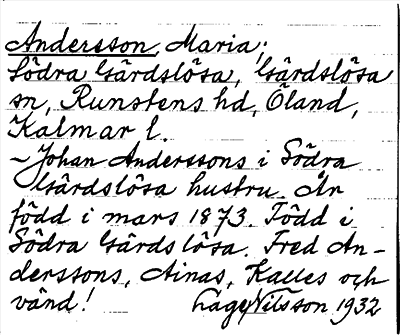 Andersson, Maria;
Södra Gärdslösa, Gärdslösa
sn, Runstens hd, Öland,
Kalmar l.
~Johan Anderssons i Södra
Gärdslösa hustru. Är
född i mars 1873. Född i
Södra Gärdslösa. Fred An-
derssons, Ainas, Kalles och
vänd! Lage Nilsson 1932